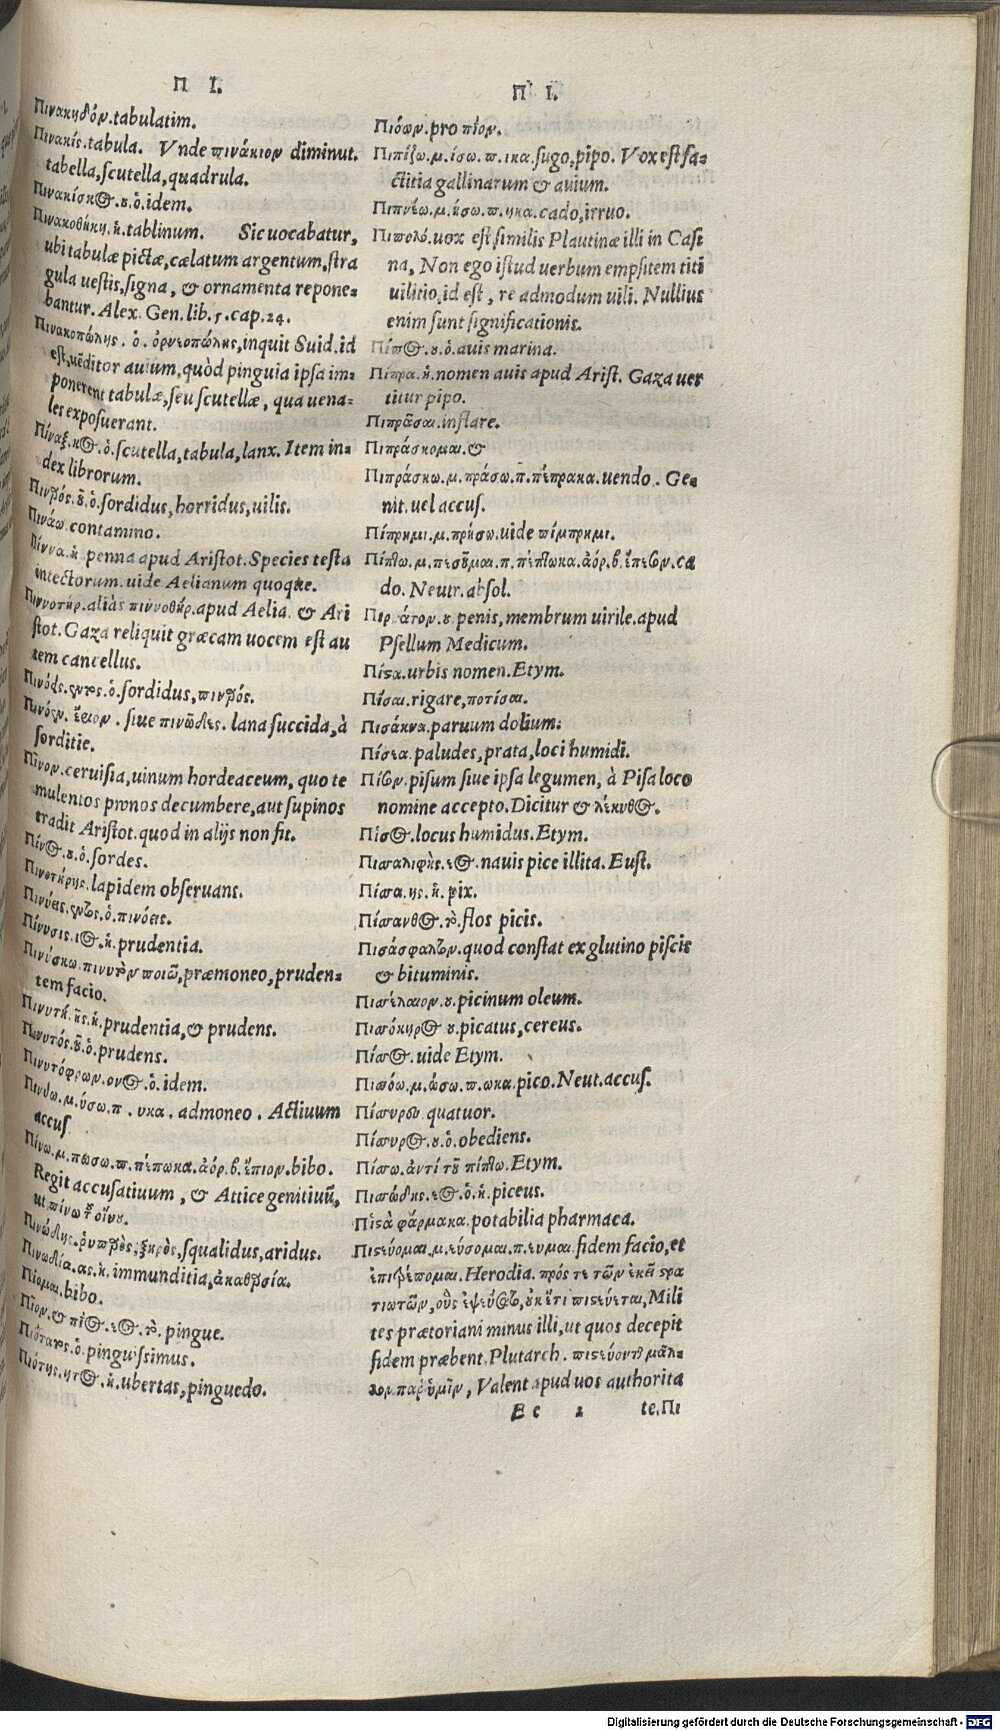 Π Ι.
Πινακηδόν.tabulatim.
Πινακίς.tabula. Vnde πινάκιον diminut.
tabella,scutella,quadrula.
Πινακίσκος.ου.ὁ.idem.
Πινακοθήκη.ἡ.tablinum. Sic uocabatur,
ubi tabulæ pictæ,cælatum argentum,stra
gula uestis,signa, & ornamenta repone=
bantur. Alex. Gen. lib.5.cap.24.
Πινακοπώλης. ὁ. ὀρνεοπώλης,inquit Suid.id
est,uēditor auium,quòd pinguia ipsa im=
ponerent tabulæ,seu scutellæ, qua uena=
les exposuerant.
Πίναξ.κος.ὁ.scutella,tabula,lanx. Item in=
dex librorum.
Πιναρός.οῦ.ὁ.sordidus,horridus,uilis.
Πινάω.contamino.
Πίννα.ἡ.penna apud Aristot.Species testa
intectorum.uide Aelianum quoque.
Πιννοτήρ.aliàs πιννοθήρ.apud Aelia. & Ari
stot.Gaza reliquit græcam uocem est au
tem cancellus.
Πινόεις.εντος.ὁ.sordidus,πιναρός.
Πινόεν. ἔριον . siue πινῶδες. lana succida,à
sorditie.
Πῖνον.ceruisia,uinum hordeaceum, quo te
mulentos pronos decumbere,aut supinos
tradit Aristot.quod in alijs non fit.
Πίνος.ου.ὁ.sordes.
Πινοτήρης.lapidem obseruans.
Πινύεις.εντος.ὁ.πινόεις.
Πίνυσις.ιος.ἡ.prudentia.
Πινύσκω.πινυτὸν ποιῶ,præmoneo,pruden=
tem facio.
Πινυτή.ῆς.ἡ.prudentia,& prudens.
Πινυτός.οῦ.ὁ.prudens.
Πινυτόφρων.ονος.ὁ.idem.
Πινύω.μ.ύσω.π . υκα . admoneo . Actiuum
accus.
Πίνω.μ.πωσω.π.πέπωκα.ἀόρ.β.ἔπιον.bibo.
Regit accusatiuum, & Attice genitiuū,
ut πίνω τοῦ οἴνου.
Πινώδης.ῥυπαρὸς,ξηρὸς,squalidus,aridus.
Πινωδία.ας.ἡ.immunditia,ἀκαθαρσία.
Πίομαι.bibo.
Πῖον.& πῖος.εος.τὸ.pingue.
Πιότατος.ὁ.pinguissimus.
Πιότης.ητος.ἡ.ubertas,pinguedo.
Π Ι.
Πιόων.pro πίον.
Πιπίζω.μ.ίσω.π.ικα.sugo,pipo. Vox est fa=
ctitia gallinarum & auium.
Πιπνέω.μ.ήσω.π.ηκα.cado,irruo.
Πιπολό.uox est similis Plautinæ illi in Casi
na, Non ego istud uerbum empsitem titi
uilitio.id est, re admodum uili. Nullius
enim sunt significationis.
Πίπος.ου.ὁ.auis marina.
Πίπρα.ἡ.nomen auis apud Arist. Gaza uer
titur pipo.
Πιπρᾶσαι.inflare.
Πιπράσκομαι.&
Πιπράσκω.μ.πράσω.π.πέπρακα.uendo. Ge=
nit.uel accus.
Πίπρημι.μ.πρήσω.uide πίμπρημι.
Πίπτω.μ.πεσοῦμαι.π.πέπτωκα.ἀόρ.β.ἔπεσον.ca
do. Neutr.absol.
Περιάτον.ου.penis,membrum uirile.apud
Psellum Medicum.
Πίσα.urbis nomen.Etym.
Πίσαι.rigare,ποτίσαι.
Πισάκνα.paruum dolium.
Πίσεα.paludes,prata,loci humidi.
Πίσον.pisum siue ipsa legumen, à Pisa loco
nomine accepto.Dicitur & λέκυθος.
Πῖσος.locus humidus.Etym.
Πισσαλιφὴς.εος.nauis pice illita. Eust.
Πίσσα.ης.ἡ.pix.
Πίσσανθος.τὸ.flos picis.
Πισάσφαλτον.quod constat ex glutino piscis
& bituminis.
Πισσέλαιον.ου.picinum oleum.
Πισσόκηρος ου.picatus,cereus.
Πίσσος.uide Etym.
Πισσόω.μ.ώσω.π.ωκα.pico.Neut.accus.
Πίσσυρσυ.quatuor.
Πίσσυρος.ου.ὁ.obediens.
Πίσσω.ἀντὶ τοῦ πίπτω.Etym.
Πισσώδης.εος.ὁ.ἡ.piceus.
Πιστὰ φάρμακα.potabilia pharmaca.
Πιστεύομαι.μ.εύσομαι.π.ευμαι.fidem facio,et
ἐπιτρέπομαι.Herodia.πρός τε τῶν ἐκεῖ στρα
τιωτῶν, οὓς ἐψεύσατο,οὐκέτι πιστεύεται,Mili
tes prætoriani minus illi,ut quos decepit
fidem præbent.Plutarch. πιστεύοντο μᾶλ=
λον παρ᾽ ὑμῖν, Valent apud uos authorita
Ee 2 te.Πι